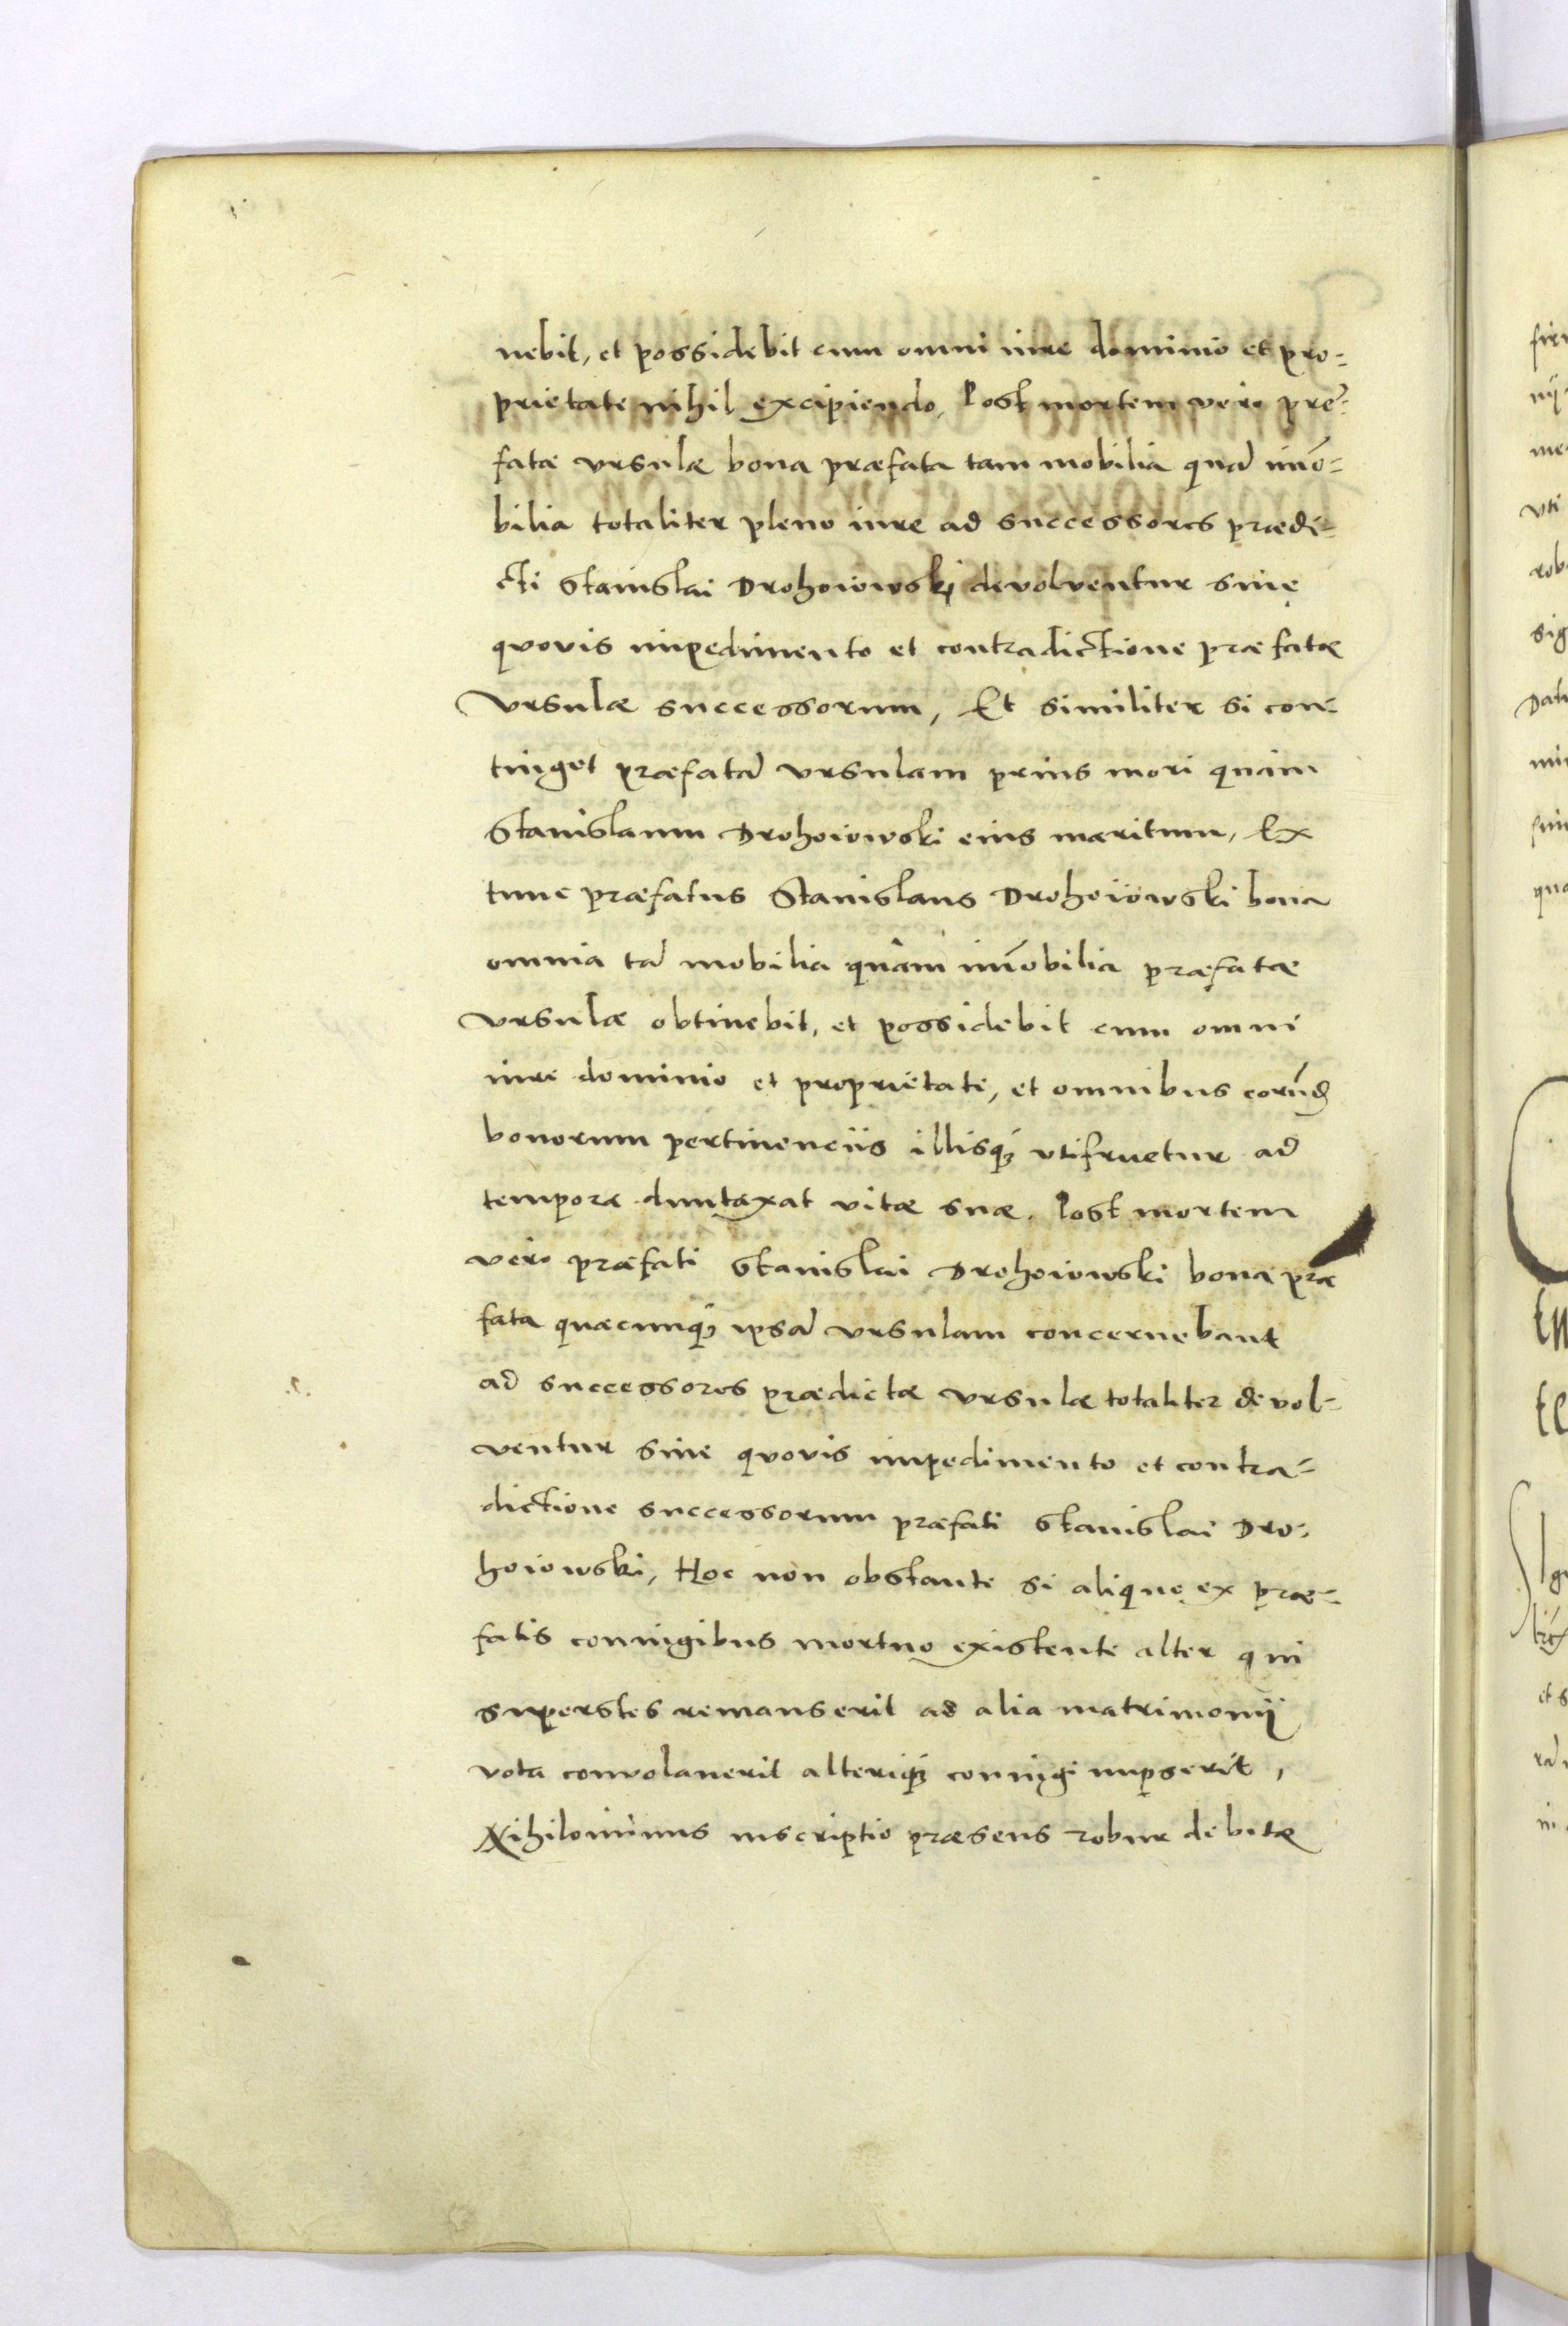 nebit, et possidebit cum omni iure dominio et pro-
prietate nihil excipiendo. Post mortem vero pre-
fatæ Vrsulæ bona præfata tam mobilia quã imõ-
bilia totaliter pleno iure ad successores prædi-
cti Stanislai Drohoiowski devolventur sine
quovis impedimento et contradictione præfatæ
Vrsulæ successorum, Et similiter si con-
tinget præfatã Vrsulam prius mori quam
Stanislaum Drohoiowski eius maritum, Ex
tunc præfatus Stanislaus Drohoiowski bona
omnia tã mobilia quàm imõbilia præfatæ
Vrsulæ obtinebit, et possidebit cum omni
iure dominio et proprietate, et omnibus eorũd
bonorum pertinenciis illisq₃ vtifruetur ad
tempora duntaxat vitæ suæ. Post mortem
vero præfati Stanislai Drohoiowski bona præ
fata quæcunq₃ ipsã Vrsulam concernebant
ad successores prædictæ Vrsulæ totaliter devol-
ventur sine quovis impedimento et contra-
dictione successorum præfati Stanislai Dro-
hoiowski, Hoc non obstante si aliquo ex præ-
fatis coniugibus mortuo existente alter qui
superstes remanserit ad alia matrimonij
vota convolauerit alteriq₃ coniugi nupserit,
Nihilominus inscriptio præsens robur debitæ